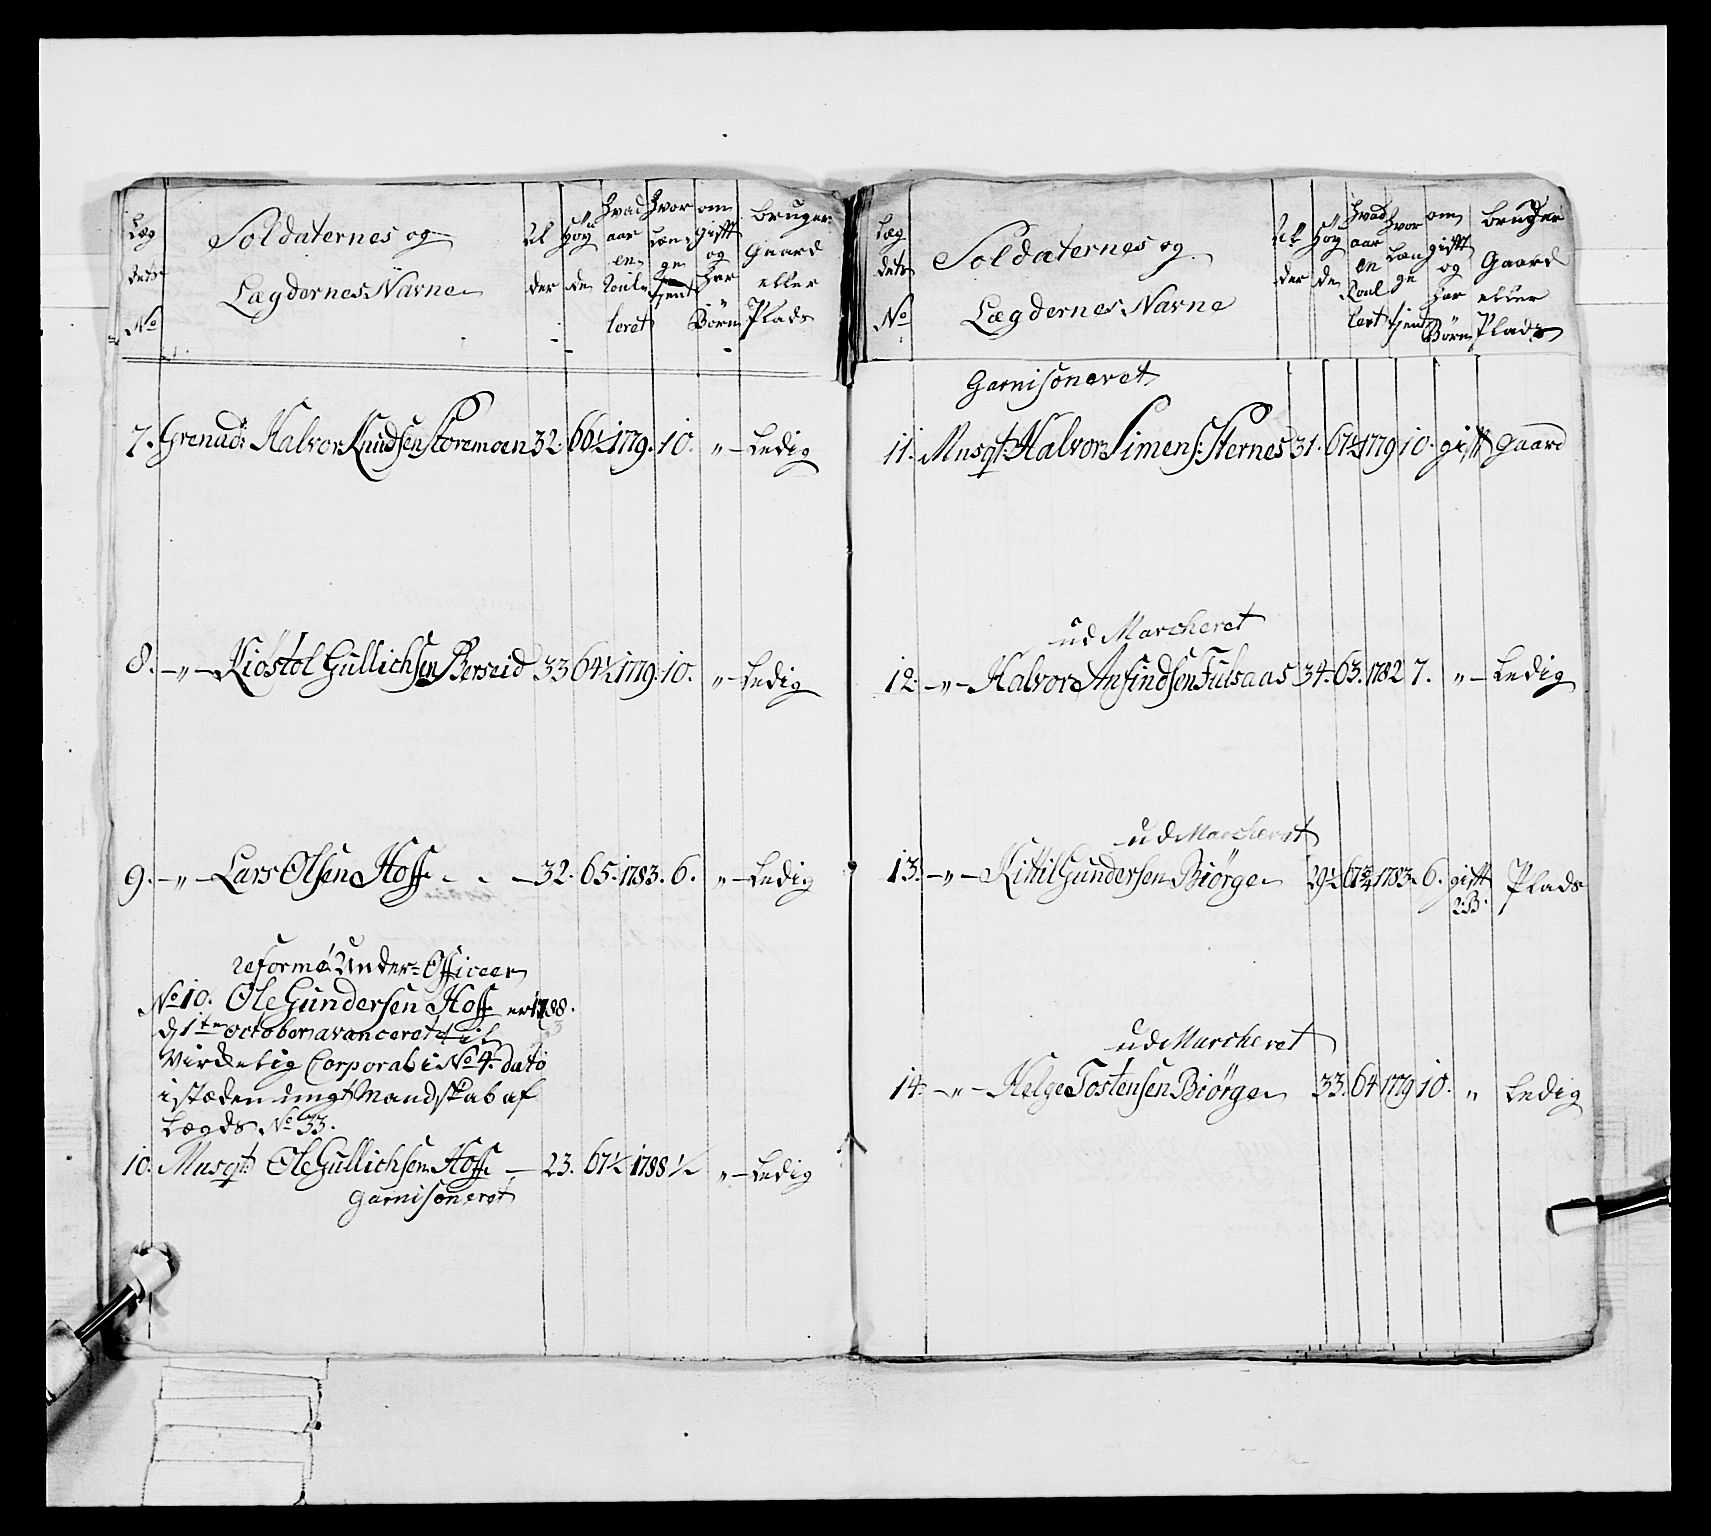 Læg dets No
Soldaternes og Lægdernes Navne
Al der
Höy de
hvad aar en Roul leret
hvor Læn ge tjent
om gift og har Börn
bruger Gaard eller Plads
7. Grenad: Halvor Knudsen Storemoen 32. 66½ 1779. 10. " - Ledig
8. - " - Kiöstol Gullichsen Berseid 33 64½ 1779. 10. " - Ledig
9. - " - Lars Olsen Hoff - - - 32. 65. 1783. 6. " - Ledig
reformé Under-Officeer
No 10. Ole Gundersen Hoff er 1788.
d 1ten october avanceret til
Virkelig Corporal i No 4. dato
i stæden ungt Mandskab af
Lægds No 33.
10. Musqt: Ole Gullichsen Hoff - 23. 67½ 1788 ½ " - Ledig
Garnisoneret
Læg dets No
Soldaternes og Lægdernes Navne
Al der
Höy de
hvad aar en Roul lert
hvor Læn ge tjent
om gift og har Börn
bruger Gaard eller Plads
Garnisoneret
11. Musqt: Halvor Simens: Sternes 31. 67½ 1779 10. gift Gaard
ud Marcheret
12. - " - Halvor Anfindsen Fulsaas 34. 63. 1782 7. " - Ledig
ud Marcheret
13. - " - Kittil Gundersen Biörge 29½ 67¾ 1783. 6. gift 2:B. Plads
ud Marcheret
14. - " - Helge Tostensen Biörge 33. 64 1779 10. " Ledig